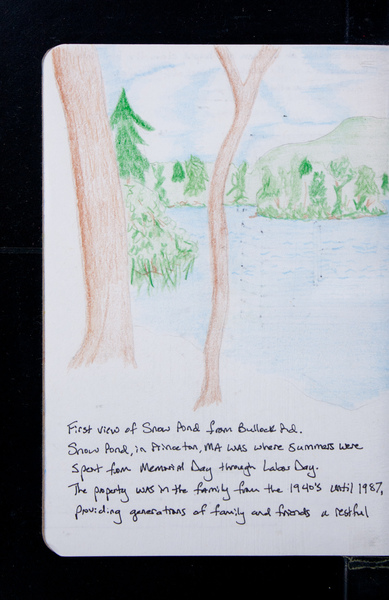 First view of Snow Pond from Bullock Rd.
Snow Pond, in Princeton, MA was where summers were
spent from Memorial Day through Labor Day.
The property was in the family from the 1940's until 1987,
providing generations of family and friends a restful